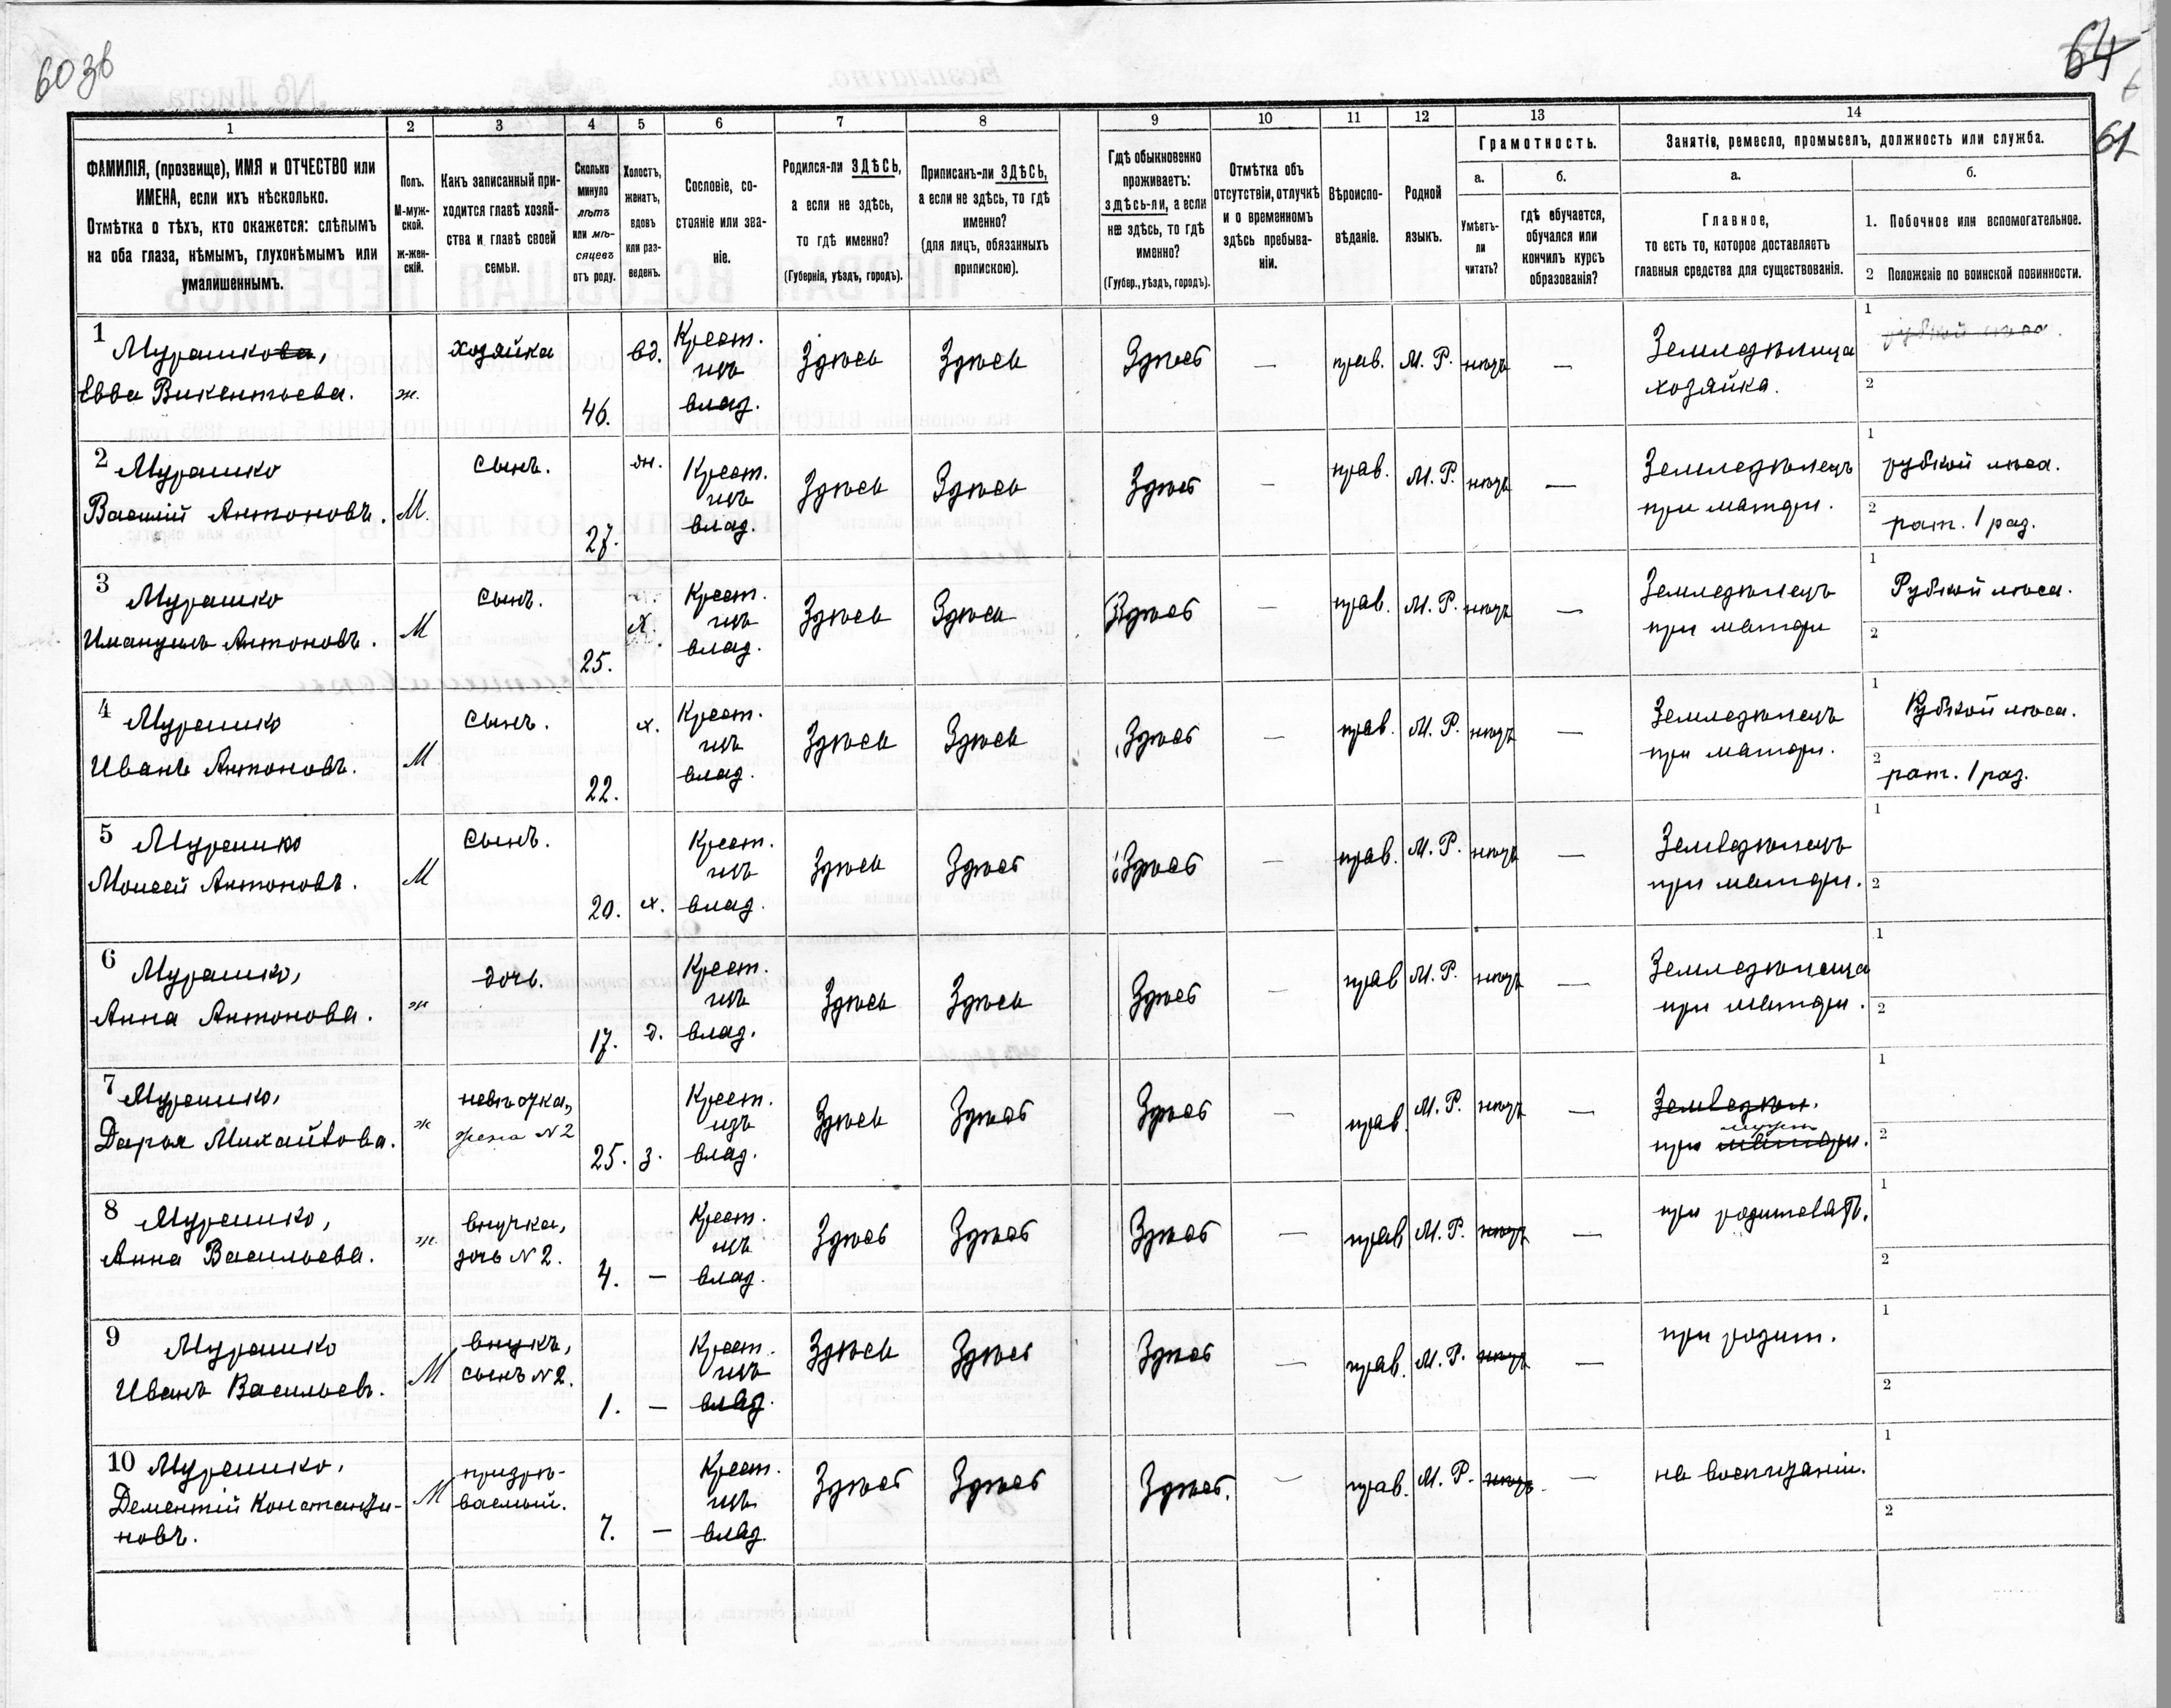 60 зв
64
61
1 2 3 4 5 6 7 8 9 10 11 12 13 14
ФАМИЛІЯ, (прозвище), ИМЯ и ОТЧЕСТВО или
ИМЕНА, если ихъ нѣсколько.
Отмѣтка о тѣхъ, кто окажется: слѣпымъ
на оба глаза, нѣмымъ, глухонѣмымъ или
умалишеннымъ.
Полъ.
М-муж-
ской.
ж-жен-
скій.
Какъ записанный при-
ходится главѣ хозяй-
ства и главѣ своей
семьи.
Сколько
минуло
лѣтъ
или мѣ-
сяцевъ
отъ роду.
Холостъ,
женатъ,
вдовъ
или раз-
веденъ.
Сословіе, со-
стояніе или зва-
ніе.
Родился-ли ЗДѢСЬ,
а если не здѣсь,
то гдѣ именно?
(Губернія, уѣздъ, городъ).
Приписанъ-ли ЗДѢСЬ,
а если не здѣсь, то гдѣ
именно?
(для лицъ, обязанныхъ
припискою).
Гдѣ обыкновенно
проживаетъ:
здѣсь-ли, а если
не здѣсь, то гдѣ
именно?
(Губер., уѣздъ, городъ).
Отмѣтка объ
отсутствіи, отлучкѣ
и о временномъ
здѣсь пребыва-
ніи.
Вѣроиспо-
вѣданіе.
Родной
языкъ.
Грамотность.
а.
Умѣетъ-
ли
читать?
б.
гдѣ обучается,
обучался или
кончилъ курсъ
образованія?
Занятіе, ремесло, промыселъ, должность или служба.
а.
Главное,
то есть то, которое доставляетъ
главныя средства для существованія.
б.
1. Побочное или вспомогательное.
2 Положеніе по воинской повинности.
1 Мурашкова,
Евва Викентьева.
ж.
хозяйка
46.
вд.
Крест.
изъ
влад.
Здѣсь
Здѣсь
Здѣсь
—
прав.
М. Р.
нѣтъ
—
Земледѣлица
хозяйка.
1 рубкой лѣса.
2
2 Мурашко
Василій Антоновъ.
М.
сынъ.
27.
жн.
Крест.
изъ
влад.
Здѣсь
Здѣсь
Здѣсь
—
прав.
М. Р.
нѣтъ
—
Земледѣлецъ
при матери.
1 рубкой лѣса.
2 рат. 1 раз.
3 Мурашко
Имануилъ Антоновъ.
М
сынъ.
25.
х.
Крест.
изъ
влад.
Здѣсь
Здѣсь
Здѣсь
—
прав.
М. Р.
нѣтъ
—
Земледѣлецъ
при матери
1 Рубкой лѣса.
2
4 Мурашко
Иванъ Антоновъ.
М
сынъ.
22.
х.
Крест.
изъ
влад.
Здѣсь
Здѣсь
Здѣсь
—
прав.
М. Р.
нѣтъ
—
Земледѣлецъ
при матери.
1 Рубкой лѣса.
2 рат. 1 раз.
5 Мурашко
Моисей Антоновъ.
М
сынъ.
20.
х.
Крест.
изъ
влад.
Здѣсь
Здѣсь
Здѣсь
—
прав.
М. Р.
нѣтъ
—
Земледѣлецъ
при матери.
1
2
6 Мурашко,
Анна Антонова.
ж
дочь.
17.
д.
Крест.
изъ
влад.
Здѣсь
Здѣсь
Здѣсь
—
прав
М. Р.
нѣтъ
—
Земледѣлица
при матери.
1
2
7 Мурашко,
Дарья Михайлова.
ж
невѣстка,
жена N 2
25.
з.
Крест.
изъ
влад.
Здѣсь
Здѣсь
Здѣсь
—
прав.
М. Р.
нѣтъ
—
Земледѣл.
мужѣ
при матери.
1
2
8 Мурашко,
Анна Васильева.
ж.
внучка,
дочь N 2.
4.
—
Крест.
изъ
влад.
Здѣсь
Здѣсь
Здѣсь
—
прав
М. Р.
нѣтъ
—
при родителяхъ.
1
2
9 Мурашко
Иванъ Васильевъ.
М
внукъ,
сынъ N 2.
1.
—
Крест.
изъ
влад.
Здѣсь
Здѣсь
Здѣсь
—
прав.
М. Р.
нѣтъ
—
при родит.
1
2
10 Мурашко,
Дементій Константи-
новъ.
М
призрѣ-
ваемый.
7.
—
Крест.
изъ
влад.
Здѣсь
Здѣсь
Здѣсь.
—
прав.
М. Р.
нѣтъ
—
на воспитаніи.
1
2